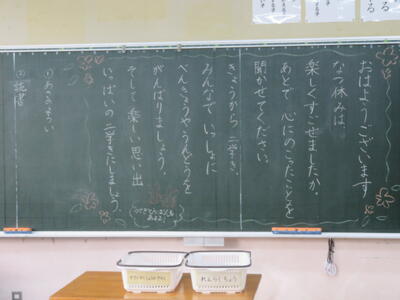 おはようございます
なつ休みは、
楽しくすごせましたか。
あとで心にのこったことを
聞かせてください。
きょうから二学き。
みんなでいっしょに
べんきょうやうんどうを
がんばりましょう。
そして楽しい思い出
いっぱいの二学きにしましょう。
①あさのまつい
②読書
れんらくちょう